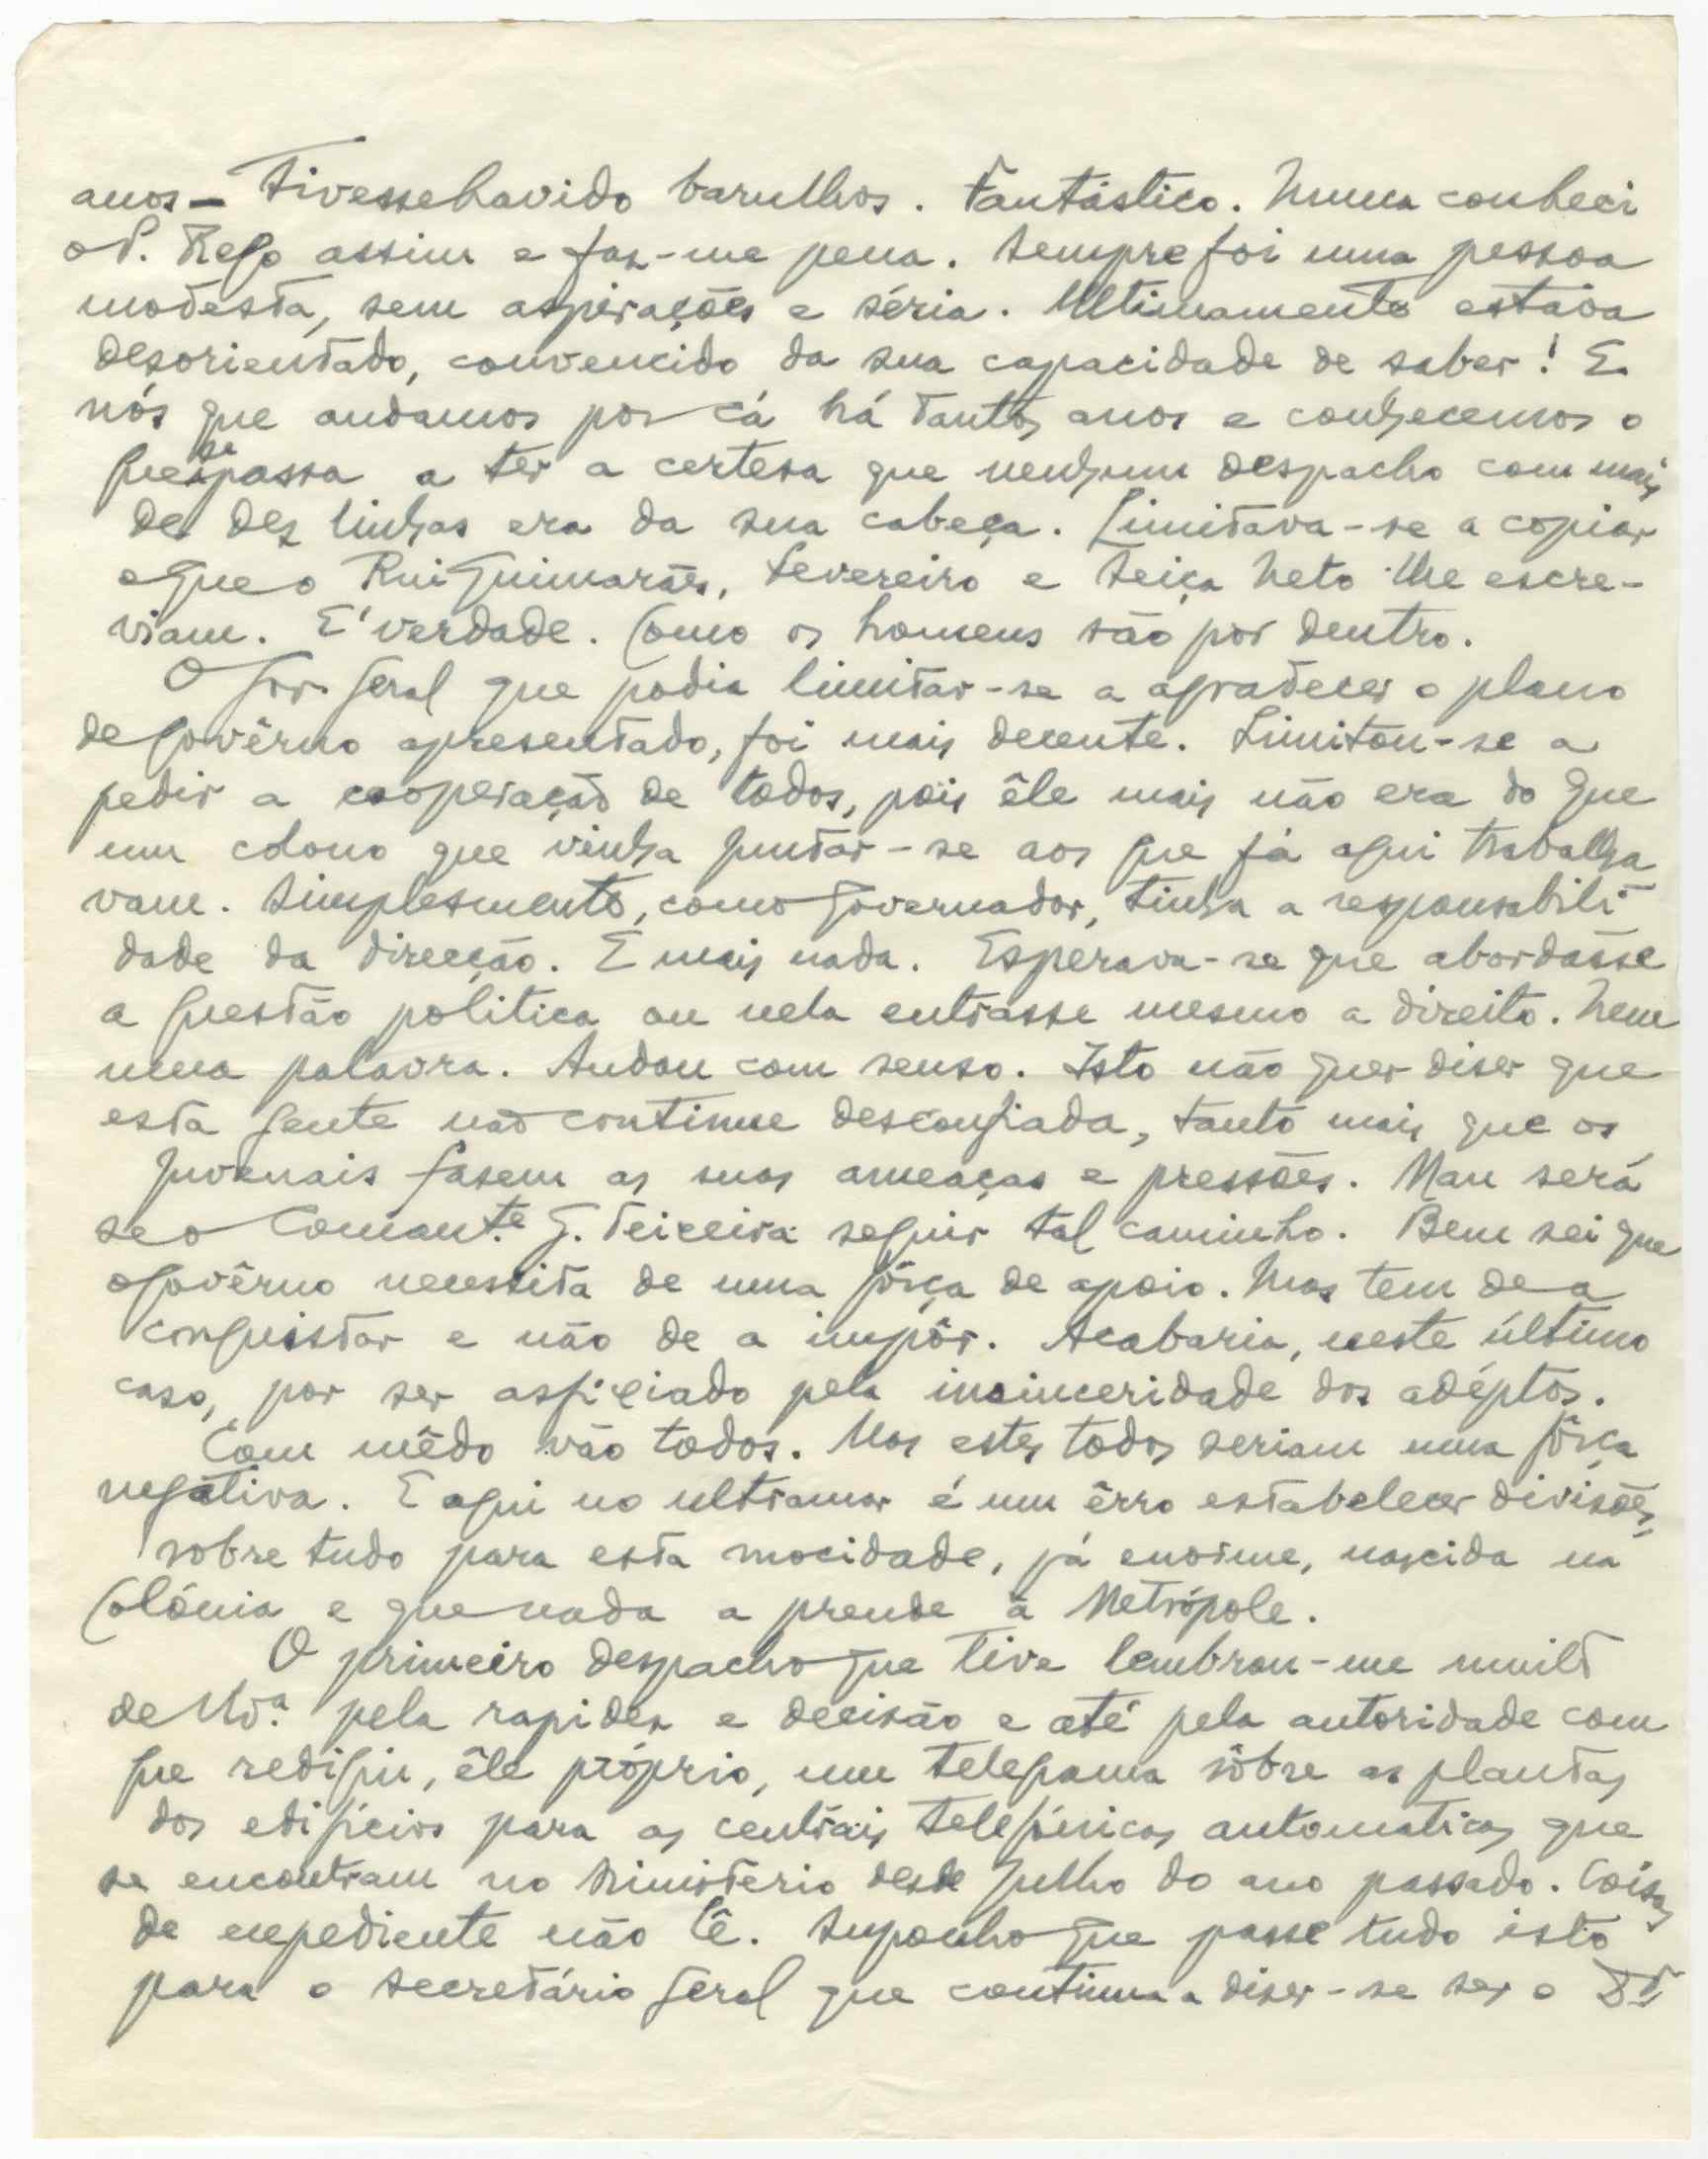 anos — tivesse havido barulhos. Fantástico. Nunca conheci
o P. Rego assim e faz-me pena. Sempre foi uma pessoa
modesta, sem aspirações e séria. Ultimamente estava
desorientado, convencido da sua capacidade de saber! E
nós que andamos por cá há tantos anos e conhecemos o
que se passa a ter a certesa que nenhum despacho com mais
de dez linhas era da sua cabeça. Limitava-se a copiar
o que o Rui Guimarães, Fevereiro e Seiça Neto lhe escre-
viam. E' verdade. Como os homens são por dentro.
O Gov. Geral que podia limitar-se a agradecer o plano
de Govêrno apresentado, foi mais decente. Limitou-se a
pedir a cooperação de todos, pois êle mais não era do que
um colono que vinha juntar-se aos que já aqui trabalha
vam. Simplesmente, como Governador, tinha a responsabili
dade da direcção. E mais nada. Esperava-se que abordásse
a questão politica ou nela entrasse mesmo a direito. Nem
uma palavra. Andou com senso. Isto não quer diser que
esta gente não continue desconfiada, tanto mais que os
Juvenais fasem as suas ameaças e pressões. Mau será
se o Coman.te G. Teixeira seguir tal caminho. Bem sei que
o Govêrno necessita de uma fôrça de apoio. Mas tem de a
conquistar e não de a impôr. Acabaria, neste último
caso, por ser asfixiado pela insinceridade dos adéptos.
Com mêdo vão todos. Mas estes todos seriam uma fôrça
negativa. E aqui no ultramar é um êrro estabelecer divisões,
sobre tudo para esta mocidade, já enorme, nascida na
Colónia e que nada a prende à Metrópole.
O primeiro despacho que tive lembrou-me muito
de V.ª pela rapidez e decisão e até pela autoridade com
que redigiu, êle próprio, um telegrama sôbre as plantas
dos edifícios para as centrais telefónicas automaticas que
se encontram no Ministerio desde Julho do ano passado. Coisas
de expediente não lê. Suponho que passe tudo isto
para o Secretário Geral que continua a diser-se ser o Dr.